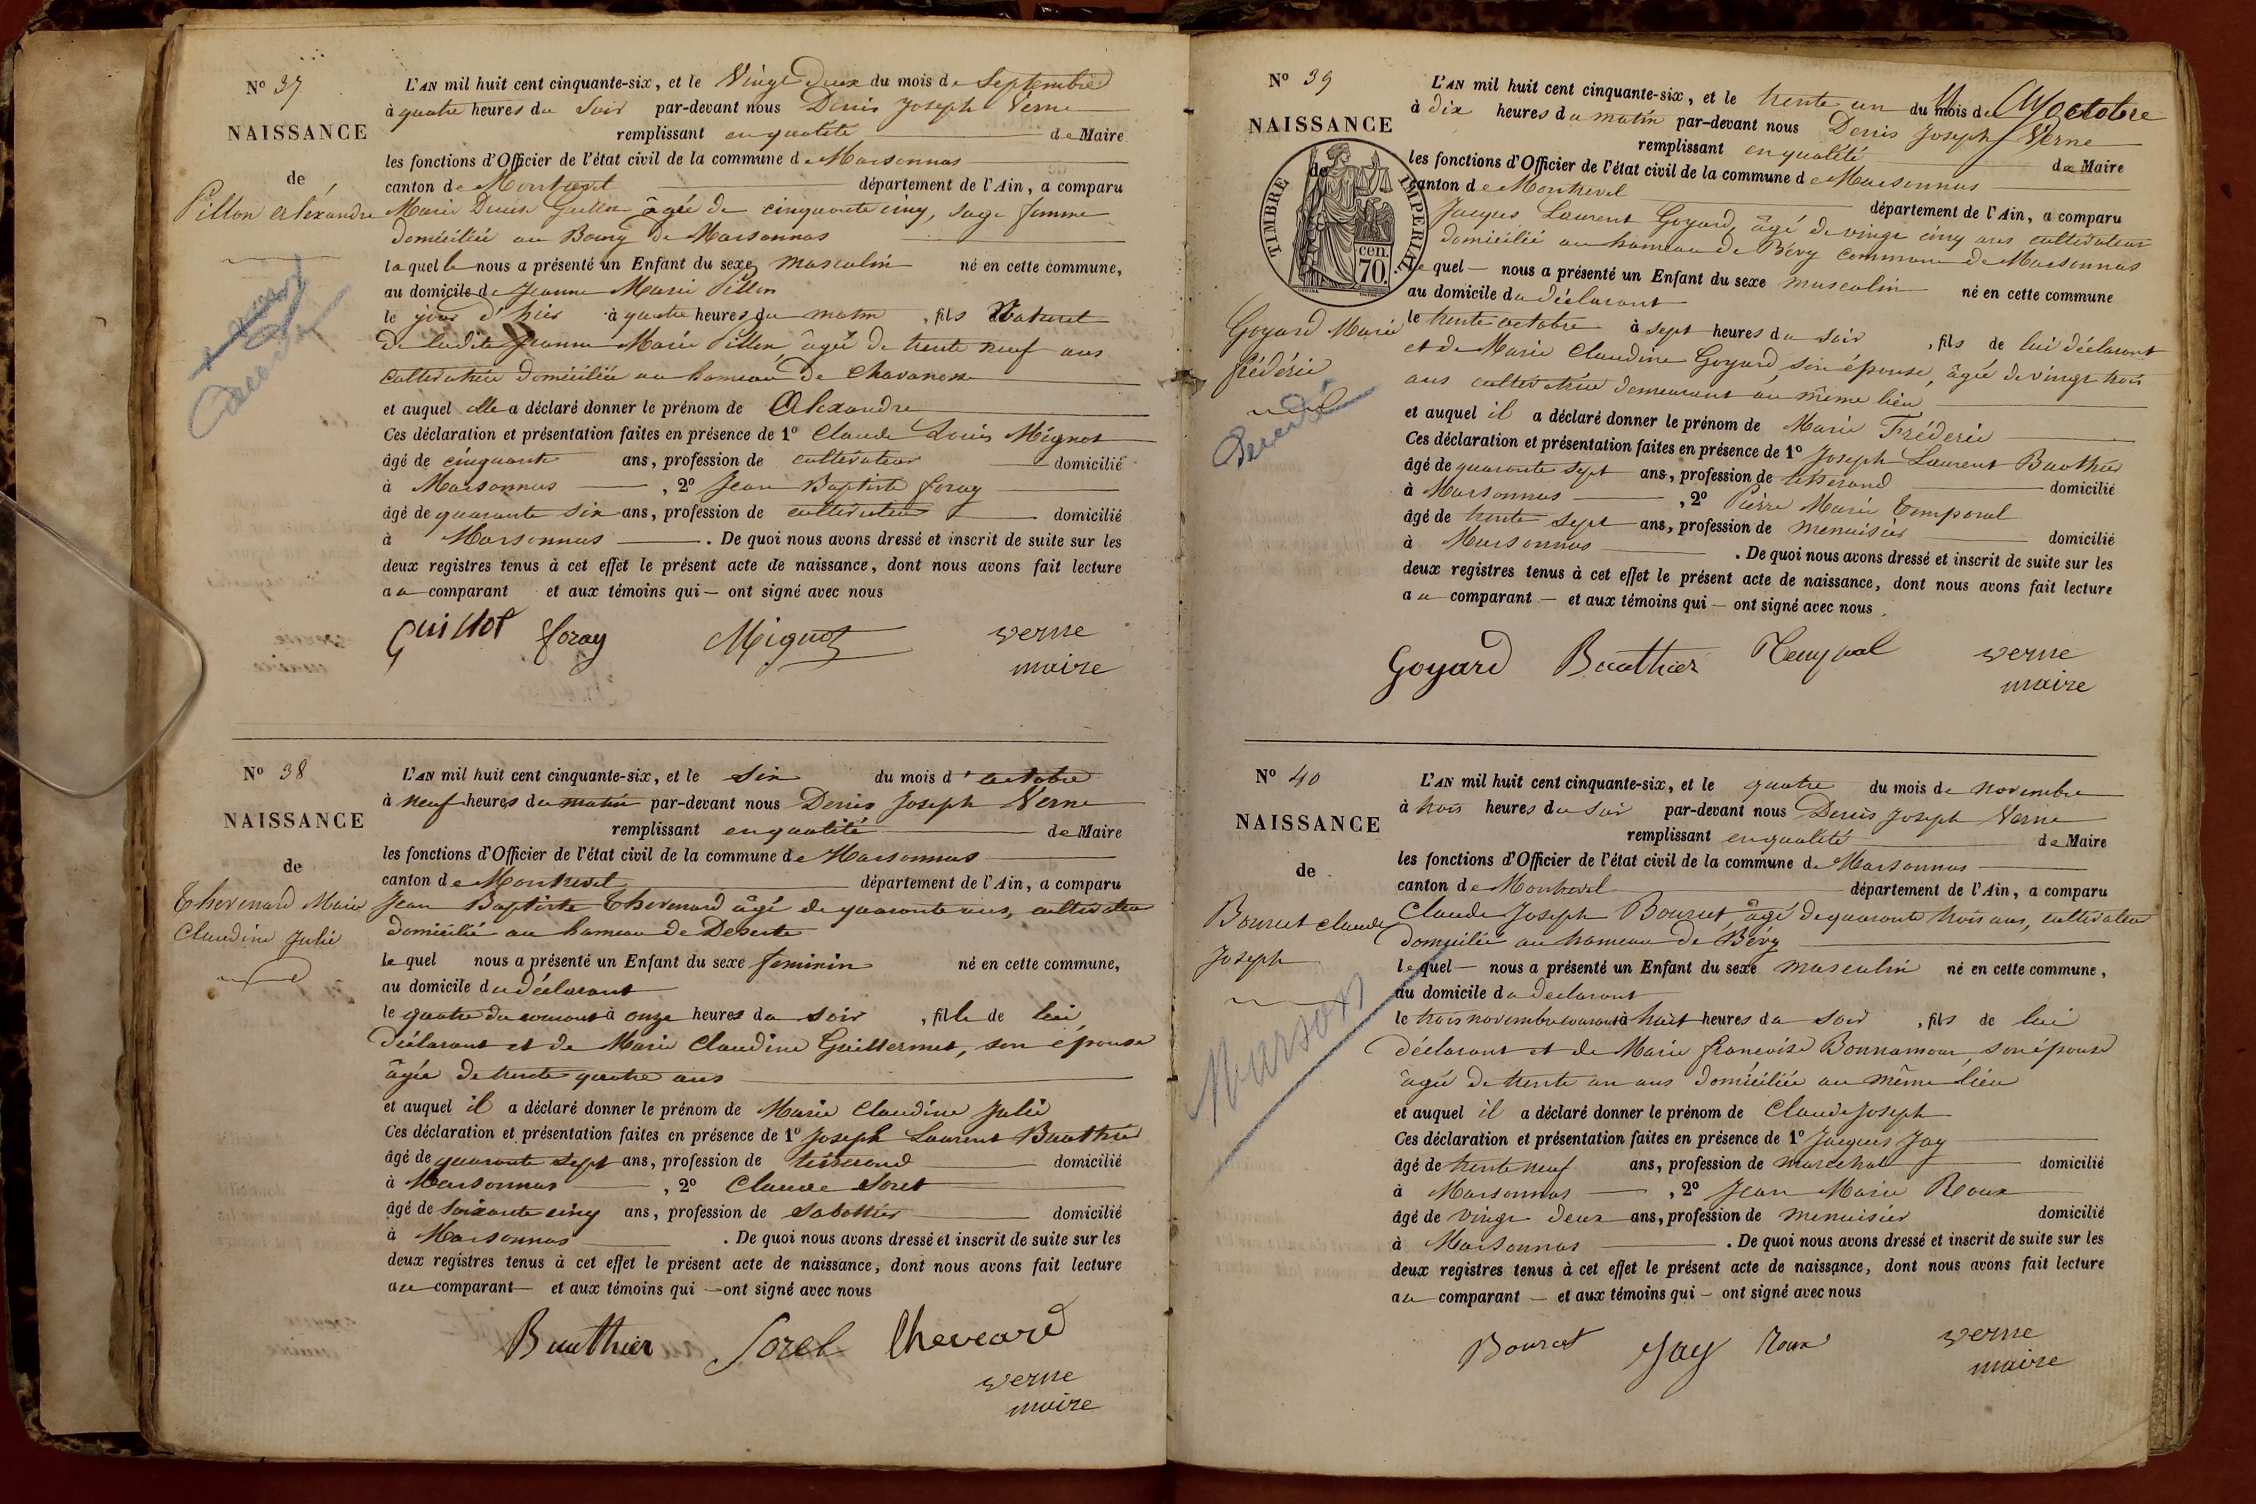 N° 37
NAISSANCE
de
Pillon Alexandre
L'AN mil huit cent cinquante-six, et le Vingt deux du mois de Septembre
à quatre heures du Soir par-devant nous Denis Joseph Verne
remplissant en qualité de Maire
les fonctions d'Officier de l'état civil de la commune de Marsonnas
canton de Montrevel département de l'Ain, a comparu
Marie Denise Guillot âgée de cinquante cinq, sage femme
domiciliée au Bourg de Marsonnas
laquelle nous a présenté un Enfant du sexe masculin né en cette commune,
au domicile de Jeanne Marie Pillon
le jour d'hier à quatre heures du matin, fils Naturel
de ladite Jeanne Marie Pillon âgée de trente neuf ans
cultivatrice domiciliée au hameau de Chavanesse
et auquel elle a déclaré donner le prénom de Alexandre
Ces déclaration et présentation faites en présence de 1° Claude Louis Mignot
âgé de cinquante ans, profession de cultivateur domicilié
à Marsonnas, 2° Jean Baptiste foray
âgé de quarante six ans, profession de cultivateur domicilié
à Marsonnas. De quoi nous avons dressé et inscrit de suite sur les
deux registres tenus à cet effet le présent acte de naissance, dont nous avons fait lecture
au comparant et aux témoins qui ont signé avec nous
Guillot foray Mignot verne
maire
N° 38
NAISSANCE
de
Thevenard Marie
Claudine Julie
L'AN mil huit cent cinquante-six, et le Six du mois d'octobre
à neuf heures du matin par-devant nous Denis Joseph Verne
remplissant en qualité de Maire
les fonctions d'Officier de l'état civil de la commune de Marsonnas
canton de Montrevel département de l'Ain, a comparu
Jean Baptiste Thevenard âgé de quarante ans, cultivateur
domicilié au hameau de Deserte
lequel nous a présenté un Enfant du sexe feminin né en cette commune,
au domicile du déclarant
le quatre du courant à onze heures du soir, fille de lui
déclarant et de Marie Claudine Guillermet, son épouse
âgée de trente quatre ans
et auquel il a déclaré donner le prénom de Marie Claudine Julie
Ces déclaration et présentation faites en présence de 1° Joseph Laurent Bauthier
âgé de quarante sept ans, profession de tisserand domicilié
à Marsonnas, 2° Claude Sorel
âgé de Soixante cinq ans, profession de Sabottier domicilié
à Marsonnas. De quoi nous avons dressé et inscrit de suite sur les
deux registres tenus à cet effet le présent acte de naissance, dont nous avons fait lecture
au comparant et aux témoins qui ont signé avec nous
Bauthier Sorel
verne
maire
N° 39
NAISSANCE
de
TIMBRE IMPERIAL
70 cen.
Goyard Marie
frédéric
Décédé
L'AN mil huit cent cinquante-six, et le trente un du mois de octobre
à dix heures du matin par-devant nous Denis Joseph Verne
remplissant en qualité de Maire
les fonctions d'Officier de l'état civil de la commune de Marsonnas
canton de Montrevel département de l'Ain, a comparu
Jacques Laurent Goyard, âgé de vingt cinq ans cultivateur
domicilié au hameau de Bévy commune de Marsonnas
lequel nous a présenté un Enfant du sexe masculin né en cette commune
au domicile du déclarant
le trente octobre à sept heures du soir, fils de lui déclarant
et de Marie Claudine Goyard son épouse, âgée de vingt trois
ans cultivatrice demeurant au même lieu
et auquel il a déclaré donner le prénom de Marie Fréderic
Ces déclaration et présentation faites en présence de 1° Joseph Laurent Bauthier
âgé de quarante sept ans, profession de tisserand domicilié
à Marsonnas, 2° Pierre Marie Temporal
âgé de trente sept ans, profession de menuisier domicilié
à Marsonnas. De quoi nous avons dressé et inscrit de suite sur les
deux registres tenus à cet effet le présent acte de naissance, dont nous avons fait lecture
au comparant et aux témoins qui ont signé avec nous
Goyard Bauthier Temporal verne
maire
N° 40
NAISSANCE
de
Bourcet Claude
Joseph
Marson
L'AN mil huit cent cinquante-six, et le quatre du mois de novembre
à trois heures du soir par-devant nous Denis Joseph Verne
remplissant en qualité de Maire
les fonctions d'Officier de l'état civil de la commune de Marsonnas
canton de Montrevel département de l'Ain, a comparu
Claude Joseph Bourcet âgé de quarante trois ans, cultivateur
domicilié au hameau de Bévy
lequel nous a présenté un Enfant du sexe masculin né en cette commune,
au domicile du declarant
le trois novembre courant à huit heures du soir, fils de lui
déclarant et de Marie francoise Bonnamour, son épouse
âgée de trente un ans domiciliée au même lieu
et auquel il a déclaré donner le prénom de Claude Joseph
Ces déclaration et présentation faites en présence de 1° Jacques Jay
âgé de trente neuf ans, profession de marechal domicilié
à Marsonnas, 2° Jean Marie Roux
âgé de vingt deux ans, profession de menuisier domicilié
à Marsonnas. De quoi nous avons dressé et inscrit de suite sur les
deux registres tenus à cet effet le présent acte de naissance, dont nous avons fait lecture
au comparant et aux témoins qui ont signé avec nous
Bourcet Jay Roux verne
maire